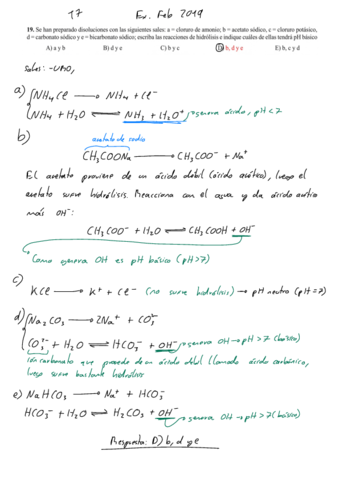 T7 Ex. Feb 2019
19. Se han preparado disoluciones con las siguientes sales: a = cloruro de amonio; b = acetato sódico, c = cloruro potásico,
d = carbonato sódico y e = bicarbonato sódico; escriba las reacciones de hidrólisis e indique cuáles de ellas tendrá pH básico
A) a y b B) d y e C) b y c D) b, d y e E) b, c y d
sales:
a) NH₄Cl ⟶ NH₄ + Cl⁻
NH₄ + H₂O ⇌ NH₃ + H₃O⁺ → genera ácido, pH < 7
b)
acetato de sodio
CH₃COONa ⟶ CH₃COO⁻ + Na⁺
El acetato proviene de un ácido débil (ácido acético), luego el
acetato sufre hidrólisis. Reacciona con el agua y da ácido acético
más OH⁻:
CH₃COO⁻ + H₂O ⇌ CH₃COOH + OH⁻
Como genera OH es pH básico (pH>7)
c)
KCl ⟶ K⁺ + Cl⁻ (no sufre hidrólisis) → pH neutro (pH=7)
d) Na₂CO₃ ⟶ 2Na⁺ + CO₃²⁻
CO₃²⁻ + H₂O ⇌ HCO₃⁻ + OH⁻ → genera OH → pH>7 (básico)
ión carbonato que procede de un ácido débil (llamado ácido carbónico,
luego sufre bastante hidrólisis
e) NaHCO₃ ⟶ Na⁺ + HCO₃⁻
HCO₃⁻ + H₂O ⇌ H₂CO₃ + OH⁻ → genera OH → pH>7 (básico)
Respuesta: D) b, d y e